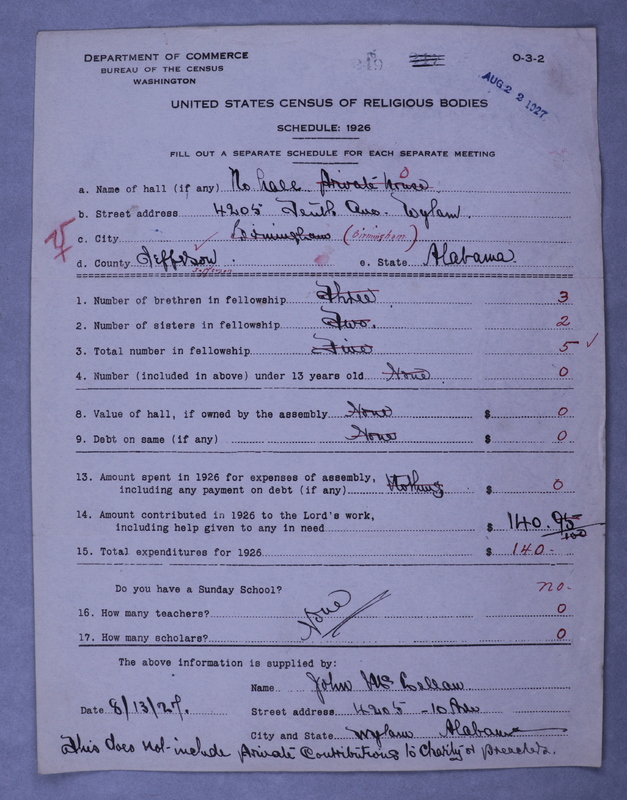 DEPARTMENT OF COMMERCE
BUREAU OF THE CENSUS
WASHINGTON
O-3-2
AUG 22 1927
UNITED STATES CENSUS OF RELIGIOUS BODIES
SCHEDULE: 1926
FILL OUT A SEPARATE SCHEDULE FOR EACH SEPARATE MEETING
a. Name of hall (if any) No hall Private house 0
b. Street address 4205 Tenth Ave. Wylam.
c. City Birmingham (Birmingham)
d. County Jefferson. e. State Alabama
Jefferson
1. Number of brethren in fellowship Three 3
2. Number of sisters in fellowship Two. 2
3. Total number in fellowship Five 5 ✓
4. Number (included in above) under 13 years old None 0
8. Value of hall, if owned by the assembly None $ 0
9. Debt on same (if any) None $ 0
13. Amount spent in 1926 for expenses of assembly,
including any payment on debt (if any) Nothing $ 0
14. Amount contributed in 1926 to the Lord's work,
including help given to any in need $ 140.95/100
15. Total expenditures for 1926 $ 140-
Do you have a Sunday School? no.
16. How many teachers? None 0
17. How many scholars? 0
The above information is supplied by:
Name John
Date 8/13/27. Street address 4205 - 10 Ave
City and State Wylam Alabama
This does not include Private Contributions to Charity or preachers.